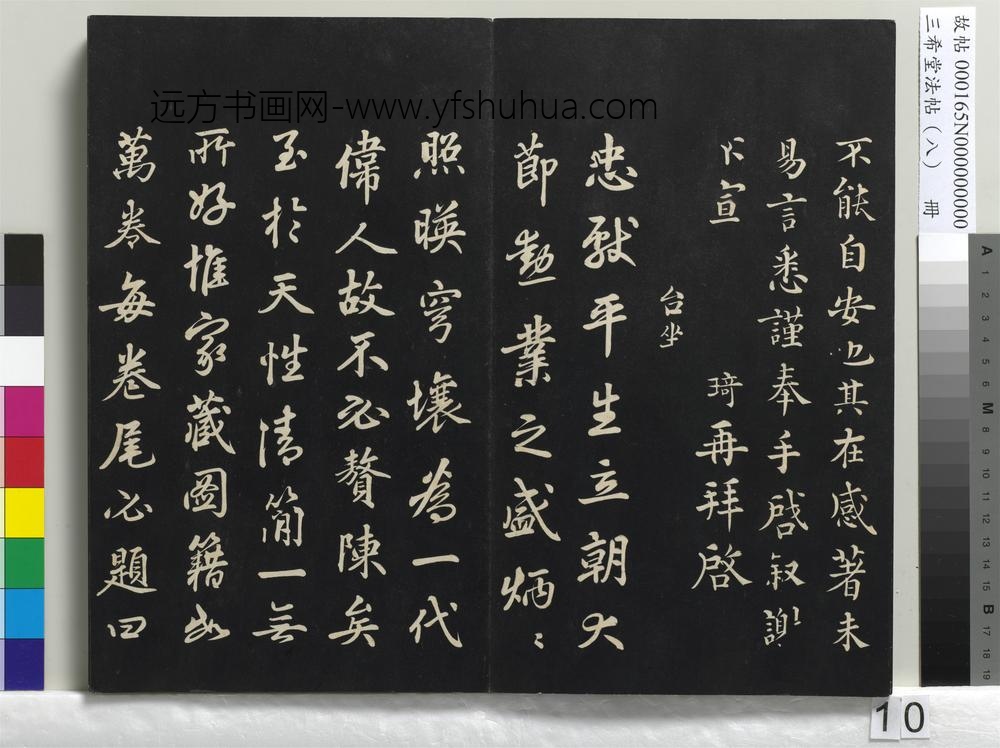 不能自安也其在感著未
易言悉謹奉手啓叙謝
不宣
琦再拜啓
台坐
忠獻平生立朝大
節勳業之盛炳〻
照暎穹壤為一代
偉人故不必贅陳矣
至於天性清簡一無
所好惟家藏圖籍如
萬卷每卷尾必題曰
远方书画网-www.yfshuhua.com
故帖 000165N000000000
三希堂法帖（八） 冊
A 1 2 3 4 5 6 M 8 9 10 11 12 13 14 15 B 17 18 19
10